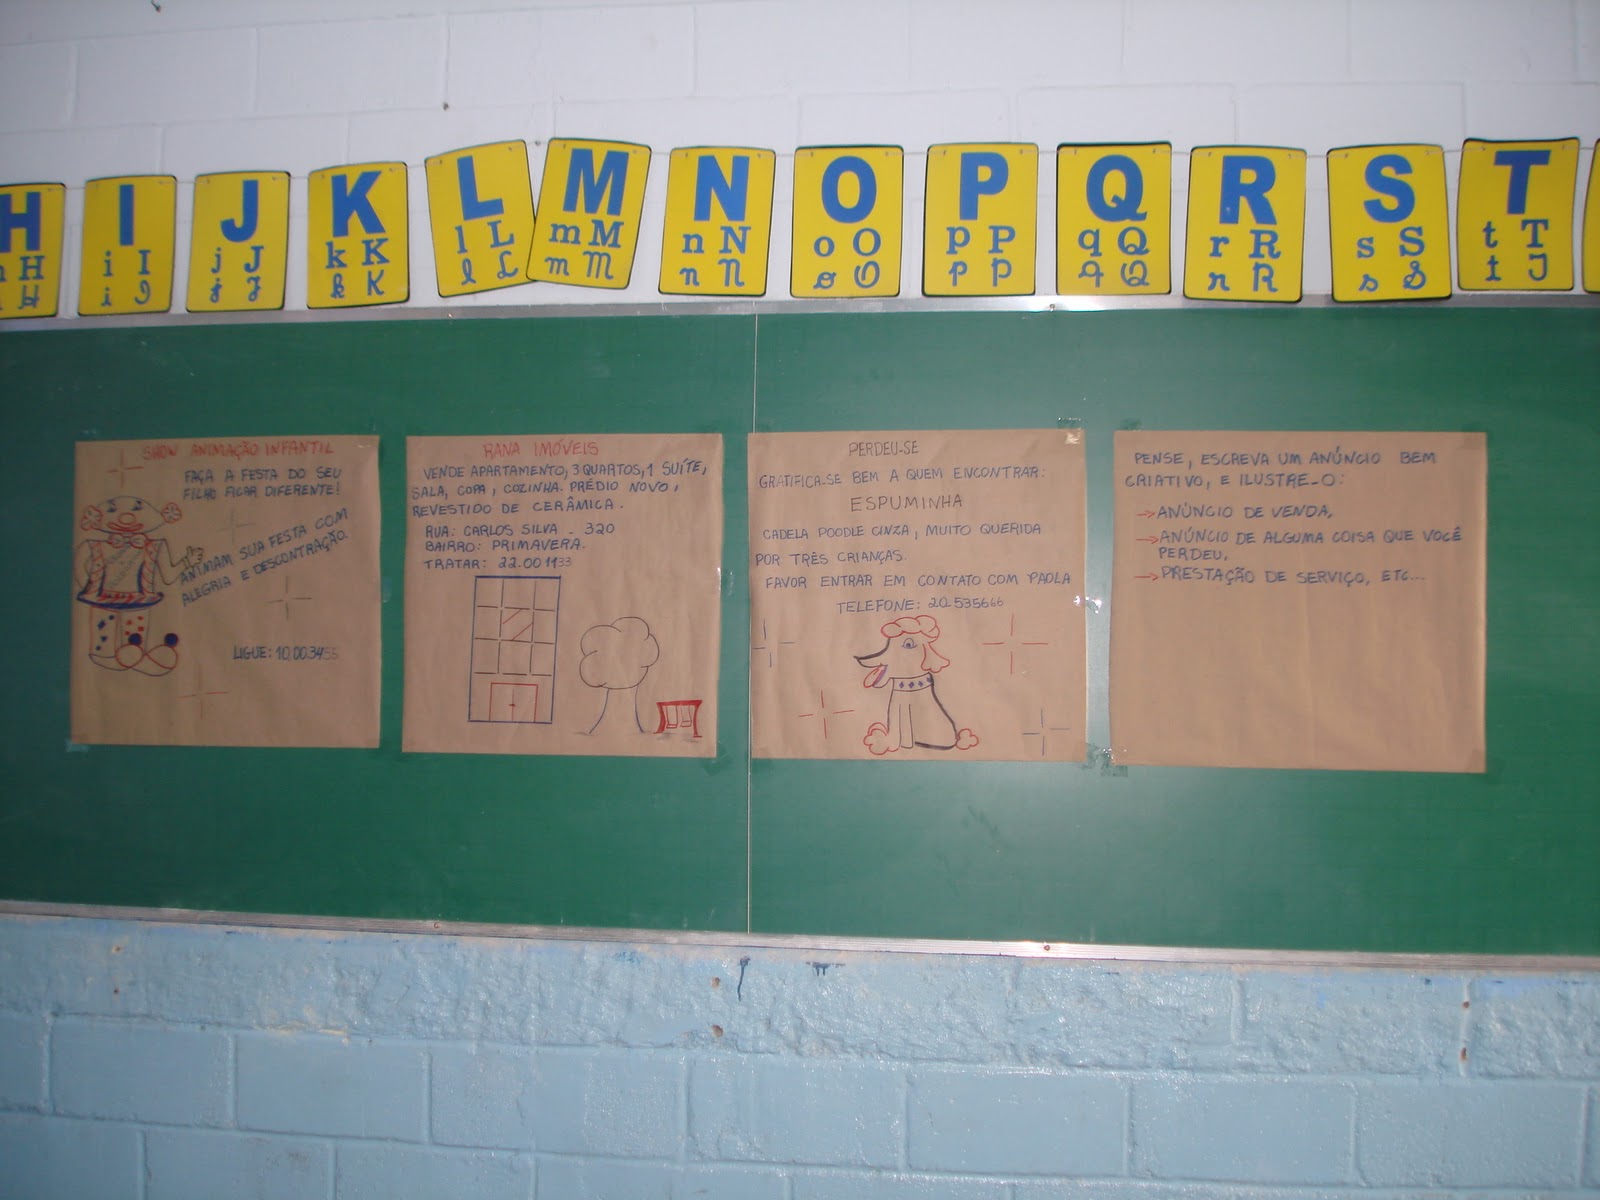 H I J K L M N O P Q R S T
h H i I j J k K l L m M n N o O p P q Q r R s S t T
h H i I j J k K l L m M n N o O p P q Q r R s S t T
SHOW ANIMAÇÃO INFANTIL
FAÇA A FESTA DO SEU
FILHO FICAR DIFERENTE!
ANIMAM SUA FESTA COM
ALEGRIA E DESCONTRAÇÃO.
LIGUE: 10.003455
RANA IMÓVEIS
VENDE APARTAMENTO, 3 QUARTOS, 1 SUÍTE,
SALA, COPA, COZINHA. PRÉDIO NOVO,
REVESTIDO DE CERÂMICA.
RUA: CARLOS SILVA - 320
BAIRRO: PRIMAVERA.
TRATAR: 22.001133
PERDEU-SE
GRATIFICA-SE BEM A QUEM ENCONTRAR:
ESPUMINHA
CADELA POODLE CINZA, MUITO QUERIDA
POR TRÊS CRIANÇAS.
FAVOR ENTRAR EM CONTATO COM PAOLA
TELEFONE: 20.535666
PENSE, ESCREVA UM ANÚNCIO BEM
CRIATIVO, E ILUSTRE-O:
→ANÚNCIO DE VENDA,
→ANÚNCIO DE ALGUMA COISA QUE VOCÊ
PERDEU,
→PRESTAÇÃO DE SERVIÇO, ETC...